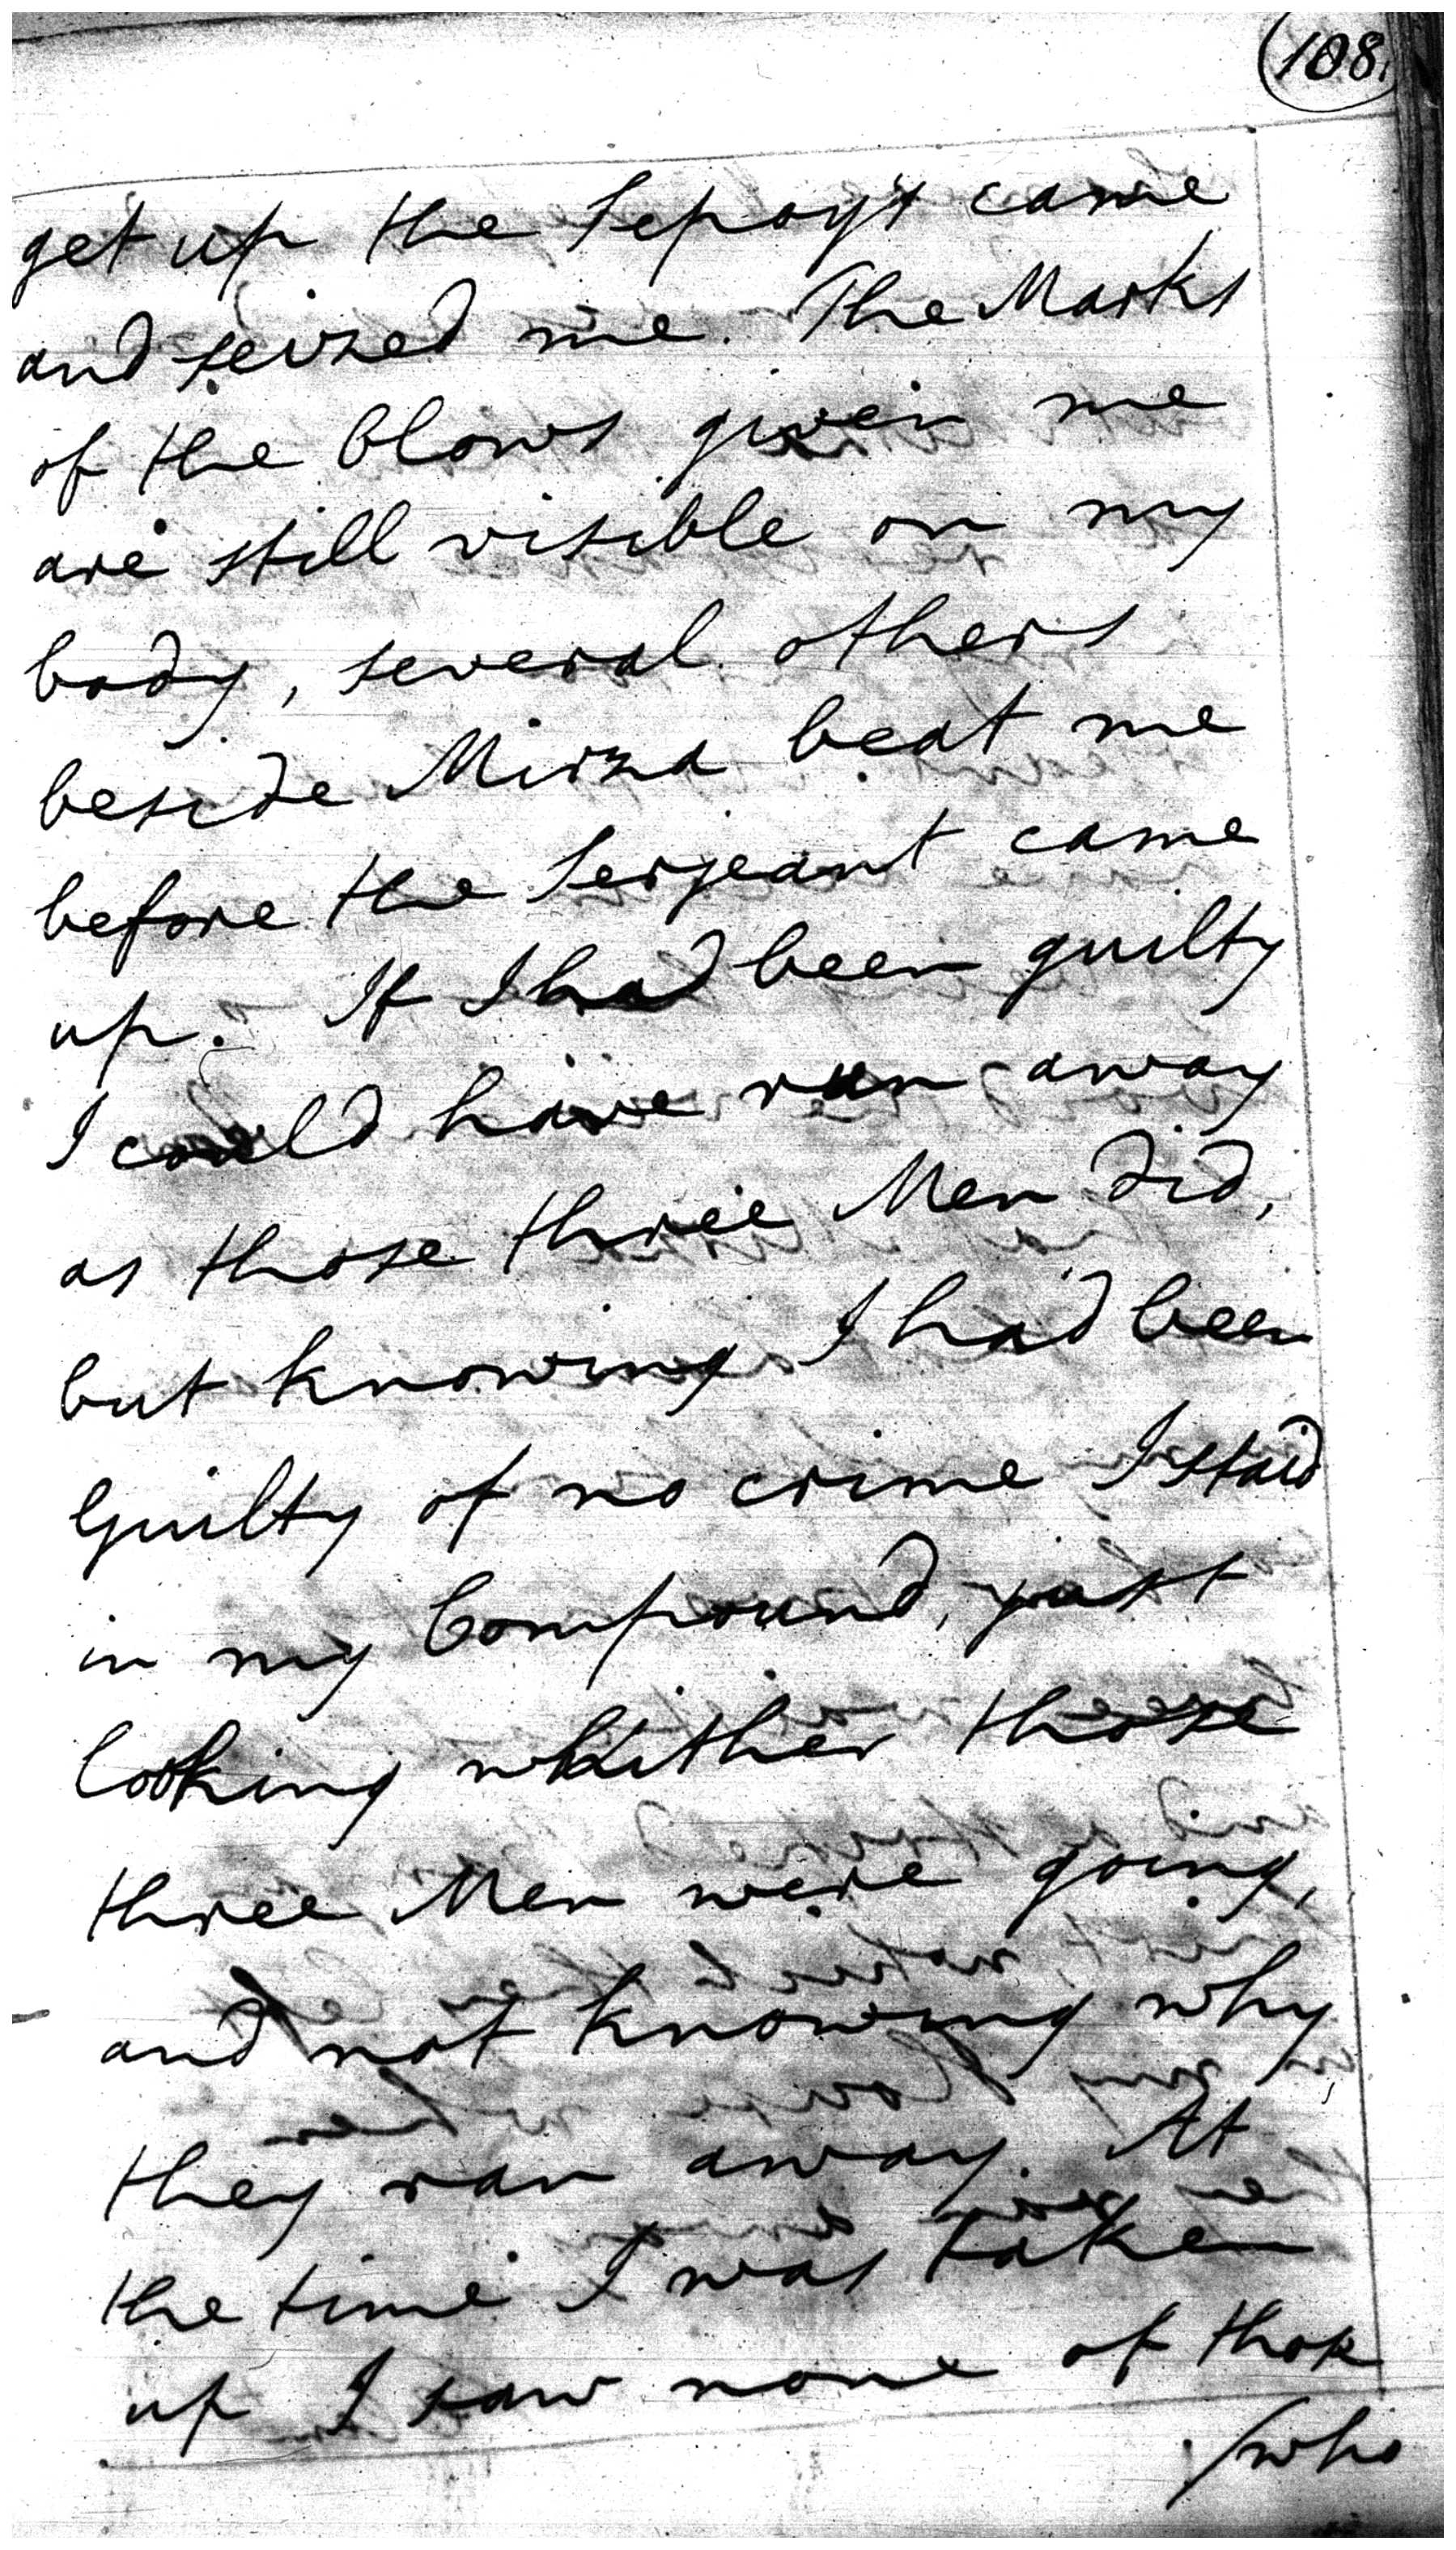 108.
get up the Sepoys came
and seized me. The Marks
of the blows given me
are still visible on my
body, several others
beside Mirza beat me
before the Sergeant came
up. If I had been guilty
I could have run away
as those three Men did,
but knowing I had been
Guilty of no crime I staid
in my Compound, just
looking whither those
three Men were going,
and not knowing why
they ran away. At
the time I was taken
up I saw none of those
/who